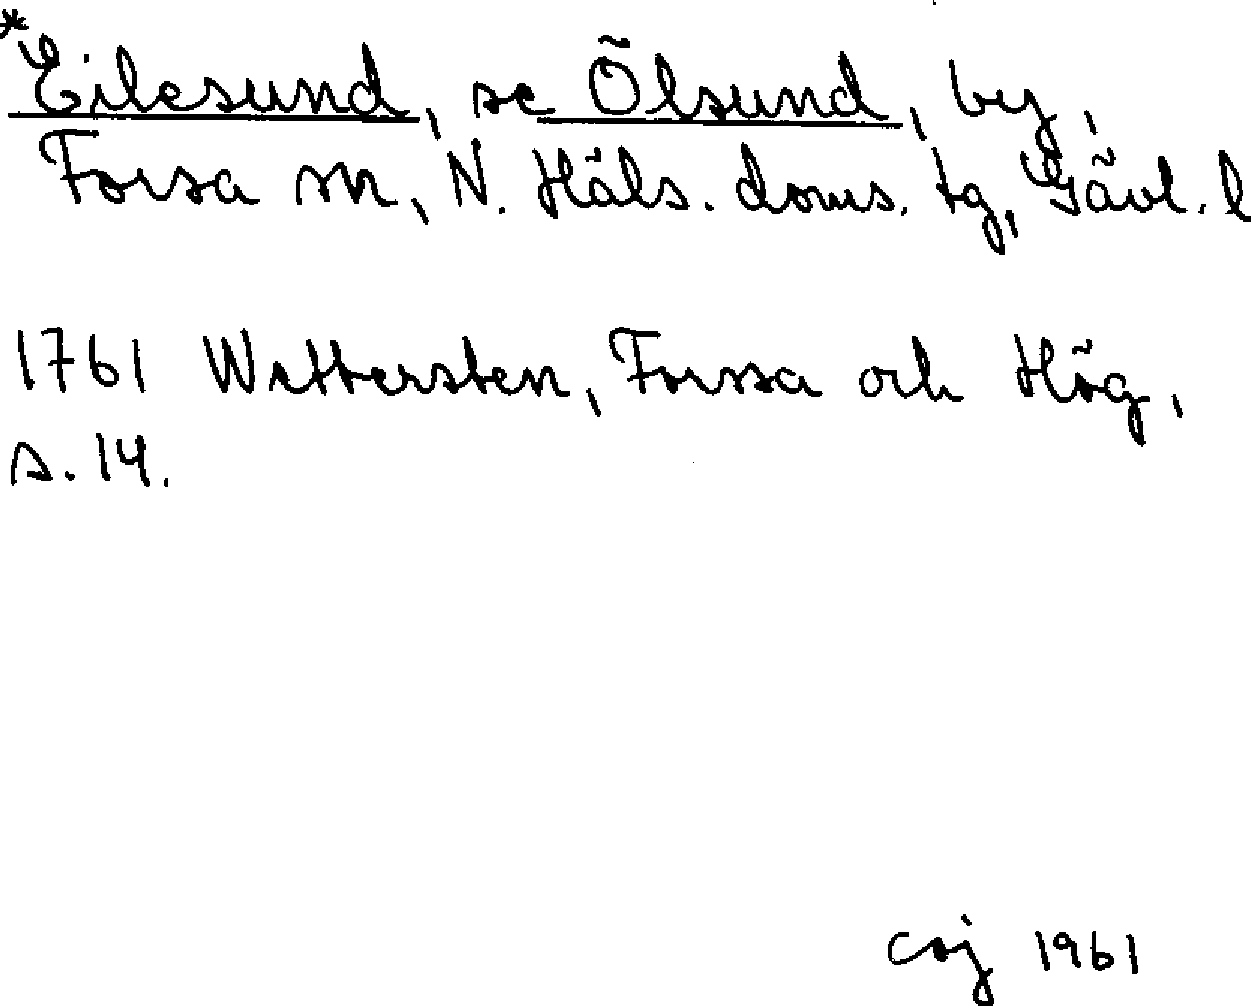 *Eilesund, se Ölsund, by,
Forsa sn, N. Häls. doms. tg, Gävl. l
1761 Wettersten, Forssa och Hög,
s. 14.
coj 1961